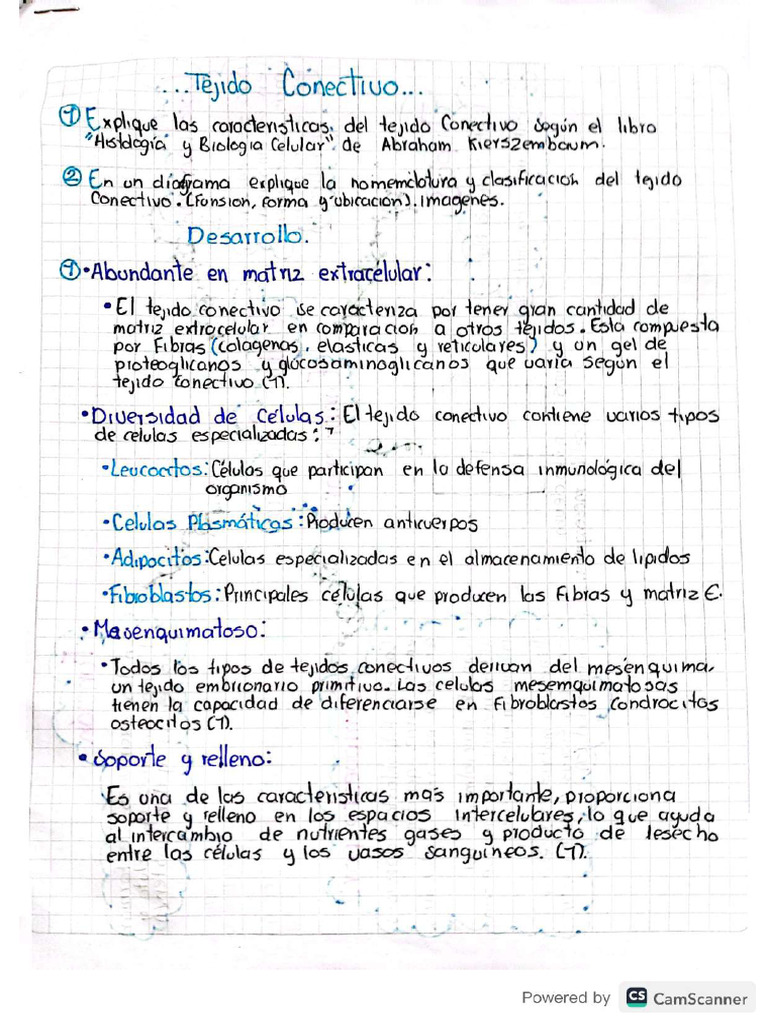 ...Tejido Conectivo...
① Explique las caracteristicas. del tejido Conectivo según el libro
"Histología y Biologia Celular" de Abraham Kierszembaum.
② En un diagrama explique la nomemclatura y clasificación del tejido
Conectivo. (Fonsion, forma y ubicación). Imagenes.
Desarrollo.
① • Abundante en matriz extracélular:
• El tejido conectivo se caracteriza por tener gran cantidad de
matriz extrocelular en comparacion a otros tejidos. Esta compuesta
por Fibras (colagenas, elasticas y reticulares) y un gel de
proteoglicanos y glucosaminoglicanos que varia según el
tejido conectivo (1).
• Diversidad de Células: El tejido conectivo contiene varios tipos
de celulas especializadas:
• Leucocitos: Células que participan en la defensa inmunológica del
organismo
• Celulas Plasmáticas: Producen anticuerpos
• Adipocitos: Celulas especializadas en el almacenamiento de lipidos
• Fibroblastos: Principales células que producen las Fibras y matriz E.
• Mesenquimatoso:
• Todos los tipos de tejidos conectivos derivan del mesenquima,
un tejido embrionario primitivo. Las celulas mesemquimatosas
tienen la capacidad de diferenciarse en Fibroblastos condrocitos
osteocitos (1).
• Soporte y relleno:
Es una de las caracteristicas mas importante, proporciona
soporte y relleno en los espacios intercelulares, lo que ayuda
al intercambio de nutrientes gases y producto de desecho
entre las células y los vasos sanguineos. (1).
Powered by CS CamScanner